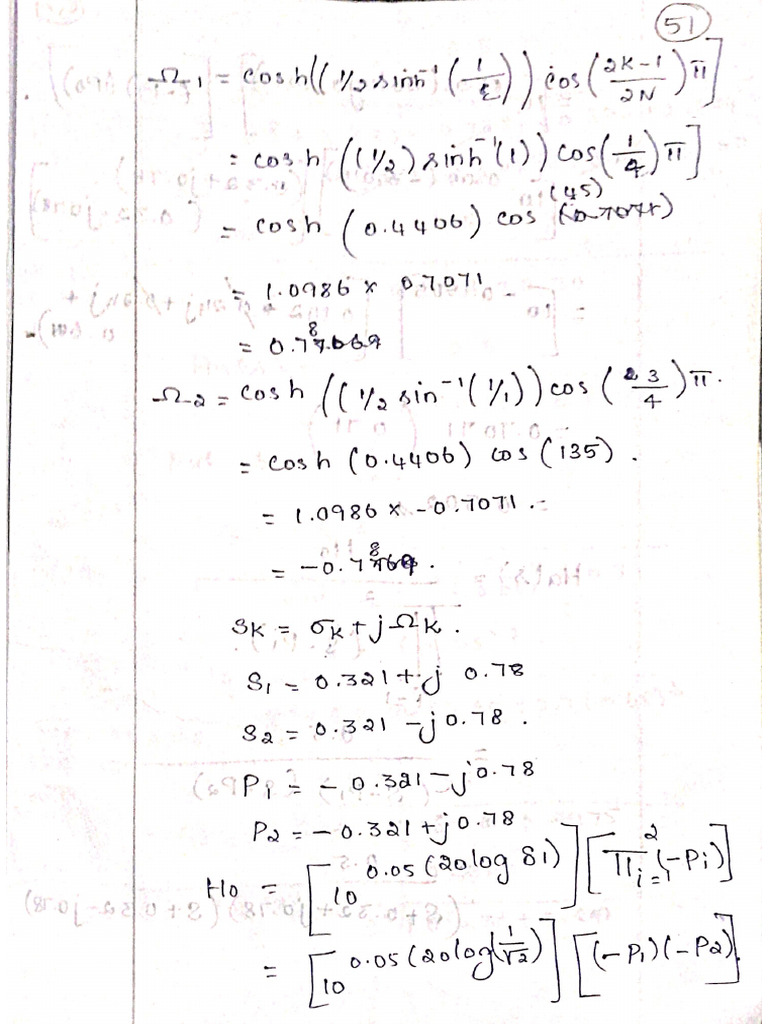 51
Ω1 = cosh((1/2 sinh⁻¹(1/ε)) cos(2K-1/2N)π]
= cosh((1/2) sinh⁻¹(1)) cos(1/4)π]
= cosh (0.4406) cos (45)
= 1.0986 x 0.7071
= 0.78
Ω2 = cosh ((1/2 sin⁻¹(1/1)) cos(3/4)π.
= cosh (0.4406) cos (135).
= 1.0986 x -0.7071.
= -0.78.
SK = σK + jΩK.
S1 = 0.321 + j 0.78
S2 = 0.321 - j0.78.
P1 = -0.321 - j0.78
P2 = -0.321 + j0.78
H0 = [10^0.05(20log δ1)] [Π²i=1 (-Pi)]
= [10^0.05(20log(1/√2)] [(-P1)(-P2)].